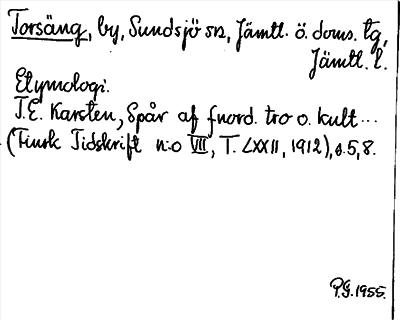 Torsäng, by, Sundsjö sn, Jämtl. ö. doms. tg,
Jämtl. l.
Etymologi.
T.E. Karsten, Spår af fnord. tro o. kult...
(Finsk Tidskrift n:o VIII, T. LXXII, 1912), s. 5, 8.
P.G. 1955.